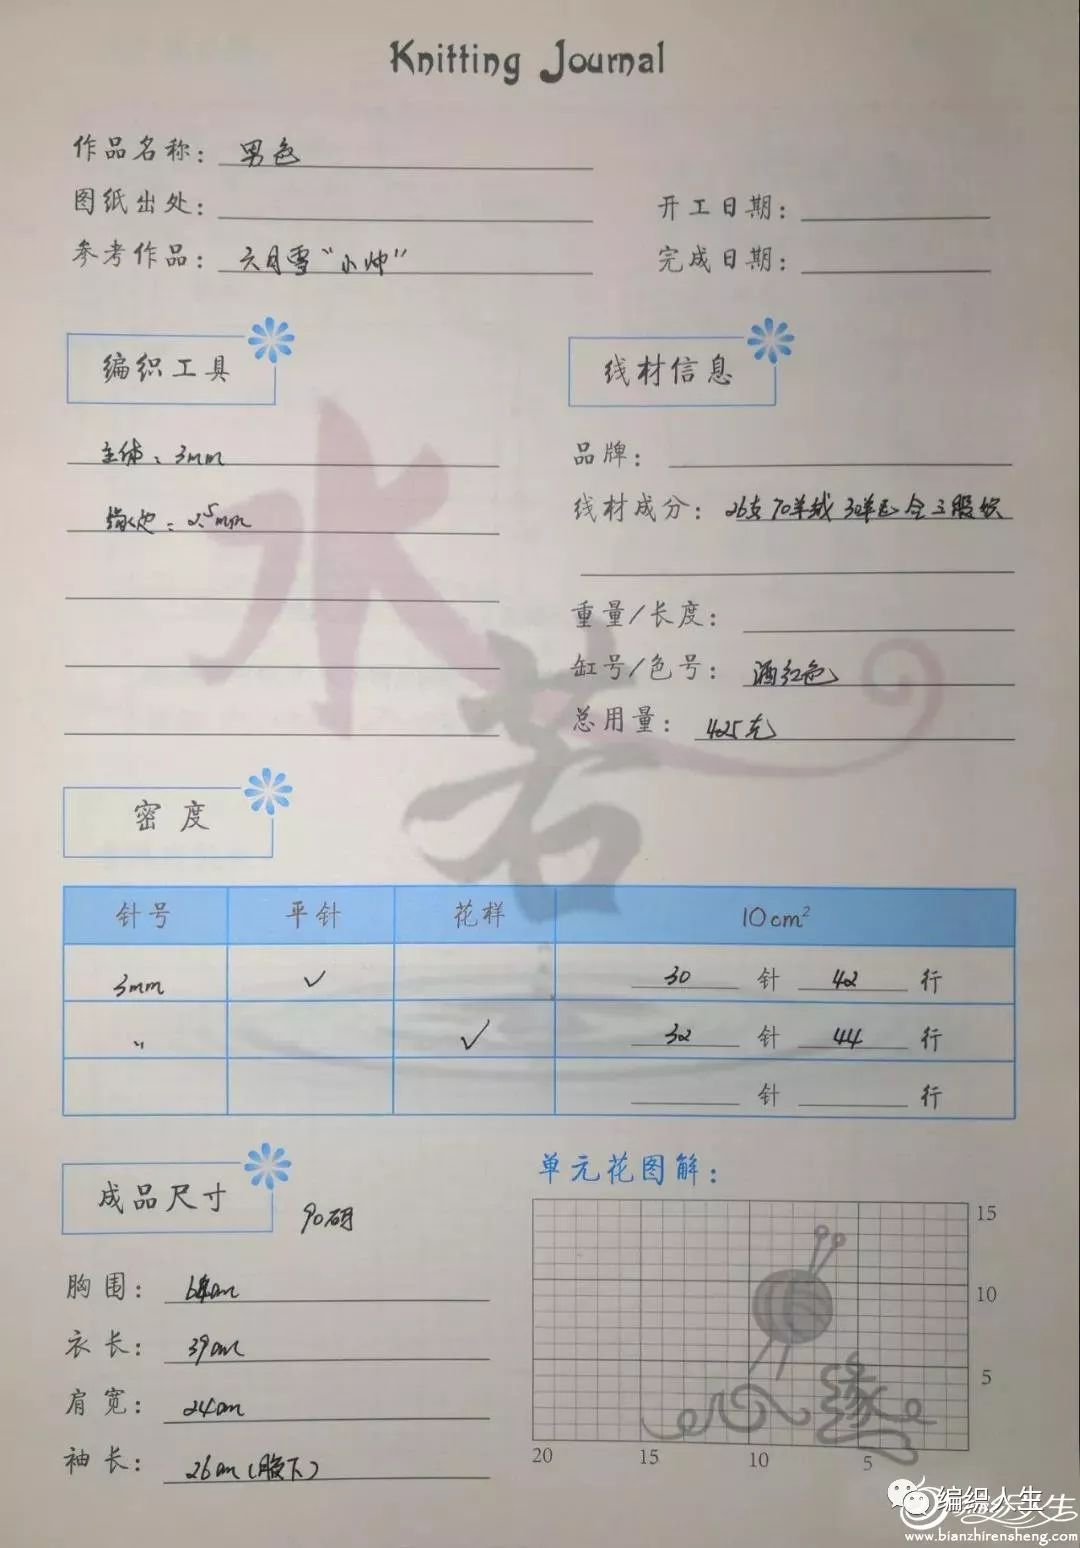 Knitting Journal
作品名称： 男色
图纸出处：
开工日期：
参考作品： 六月雪“小帅”
完成日期：
编织工具
主体：3mm
缘边：2.5mm
线材信息
品牌：
线材成分： 26支70羊绒30羊毛 仝三股织
重量/长度：
缸号/色号： 酒红色
总用量： 425克
水若
密度
针号 平针 花样 10cm²
3mm ✓ 30 针 42 行
〃 ✓ 32 针 44 行
针 行
成品尺寸 90码
胸围： 64cm
衣长： 39cm
肩宽： 24cm
袖长： 26cm（腋下）
单元花图解：
15
10
5
20 15 10 5
缘
编织人生
www.bianzhirensheng.com